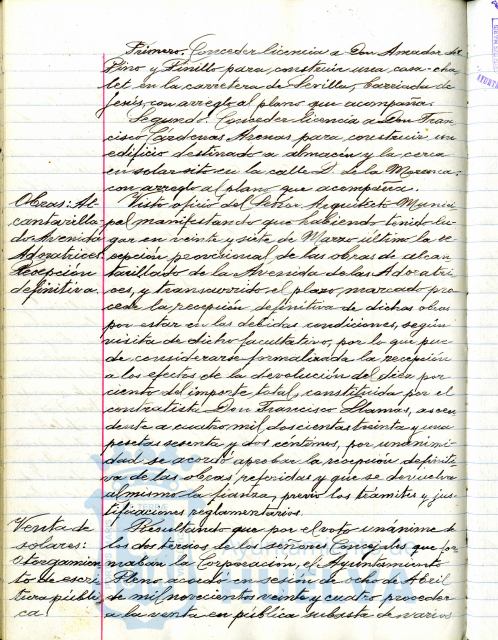 Primero. Conceder licencia a Don Amador del
Pino y Pinillo para construir una casa-cha-
let en la carretera de Sevilla, barriada de
Jesús, con arreglo al plano que acompaña.
Segundo. Conceder licencia a Don Fran-
cisco Cárdenas Arenas para construir un
edificio destinado a almacén y la cerca
en solar sito en la calle D. de la
con arreglo al plano que acompaña.
Obras: Al-
cantarilla-
do Avenida
Adoratrices
Recepción
definitiva.
Visto oficio del Señor Arquitecto Munici-
pal manifestando que habiendo tenido lu-
gar en veinte y siete de Marzo último la re-
cepción provisional de las obras de alcan-
tarillado de la Avenida de las Adoratri-
ces, y transcurrido el plazo marcado pro-
cede la recepción definitiva de dichas obras
por estar en las debidas condiciones, según
visita de dicho facultativo, por lo que pue-
de considerarse formalizada la recepción
a los efectos de la devolución del diez por
ciento del importe total, constituida por el
contratista Don Francisco Llamas, ascen-
dente a cuatro mil doscientas treinta y una
pesetas sesenta y dos céntimos, por unanimi-
dad se acordó aprobar la recepción definiti-
va de las obras referidas y que se devuelva
al mismo la fianza, previo los trámites y jus-
tificaciones reglamentarios.
Venta de
solares:
Otorgamien-
to de escri-
tura públi-
ca
Resultando que por el voto unánime de
los dos tercios de señores Concejales que for-
maban la Corporación, el Ayuntamiento
Pleno acordó en sesión de ocho de Abril
de mil novecientos veinte y cuatro proceder
a la venta en pública subasta de varios